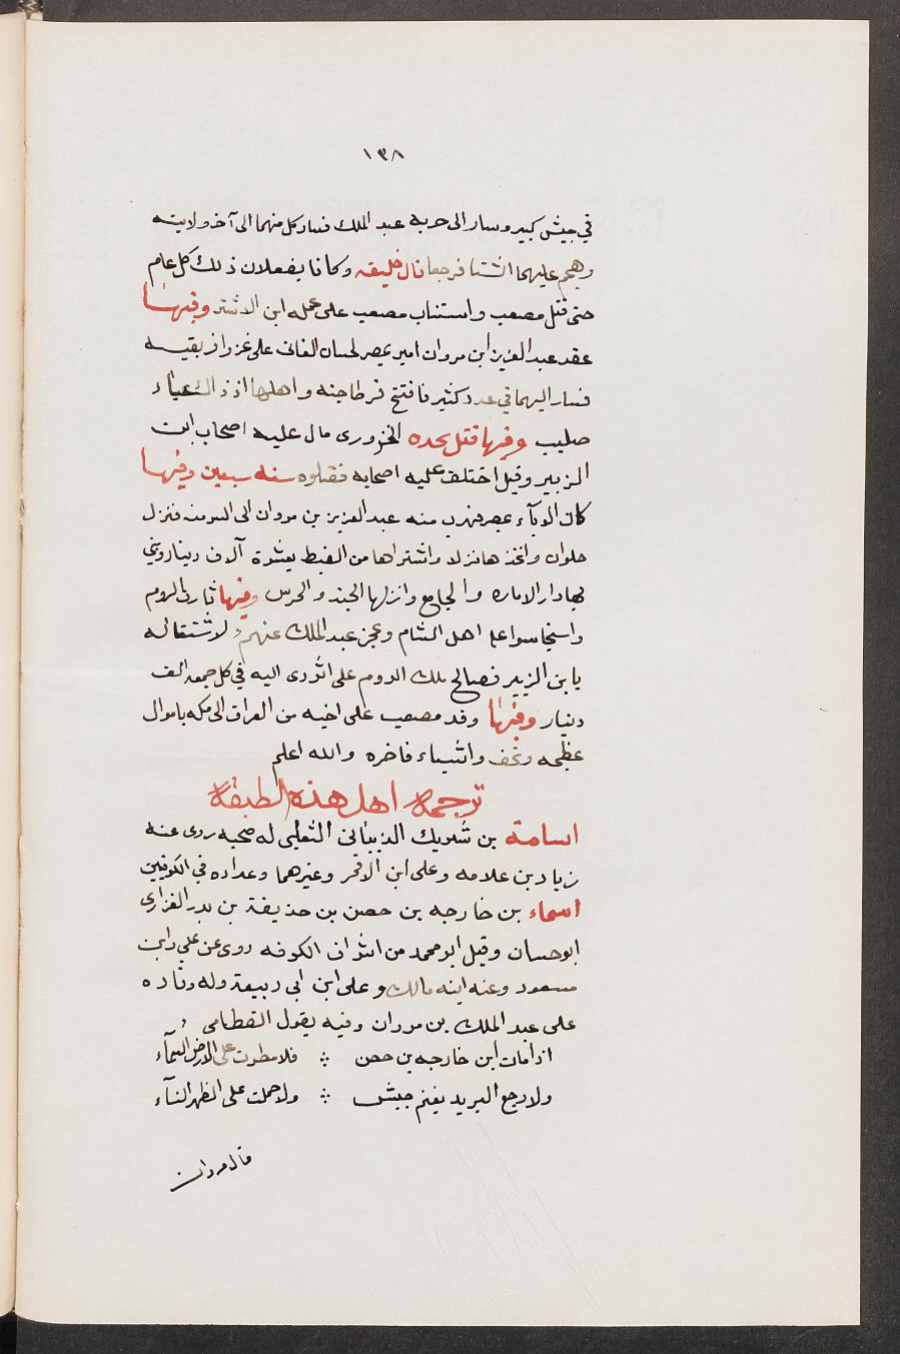 ١٣٨
في جيش كبير وسار الى حربه عبد الملك فسار كل منهما الى آخر ولايته
وهجم عليهما الشتا فرجعا قال خليفه وكانا يفعلان ذلك كل عام
حتى قتل مصعب واستناب مصعب على عمله ابن الاشتر وفيهــا
عقد عبد العزيز ابن مروان امير بمصر لحسان الغانى على غزو افريقيــه
فسار اليهما في عدد كثير فافتتح قرطاجنه واهلها اذ ذالك عبّاء
صليب وفيها قتل نجده الخزورى مال عليه اصحاب ابن
الزبير وقيل اختلف عليه اصحابه فقتلوه سنه سبعين وفيهــا
كان الوبآء بمصر فهرب منه عبد العزيز بن مروان الى فنزل
حلوان واتخذها منزلا واشتراها من القبط بعشرة آلاف دينار وبنى
بها دار الاماره والجامع وانزلها الجند والحرس وفيها ثارت الروم
واستجاسوا على اهل الشام وعجز عبد الملك عنهم لاشتقاله
يابن الزبير فصالح ملك الروم على ان يؤدى اليه في كل جمعه الف
دينار وفيها وفد مصعب على اخيه من العراق الى مكه باموال
عظيمه وتحف واشياء فاخره والله اعلم
ترجمة اهل هذه الطبقة
اسامة بن شريك الذبيانى الثعلبى له صحبه روى عنه
زياد بن علاقه وعلى ابن الاقمر وغيرهما وعداده في الكوفيين
اسماء بن خارجه بن حصن بن حذيفة بن بدر الفزارى
ابو حسان وقيل ابو محمد من اشراف الكوفه روى عن علي وابن
مسعود وعنه ابنه مالك وعلى ابن ابى ربيعة وله وفاده
على عبد الملك بن مروان وفيه يقول القطامى
اذا مات ابن خارجه بن حصن ⁘ فلا مطرت على الارض السمآء
ولا رجع البريد بغنم جيش ⁘ ولا حملت على الظهر النسآء
قال مروان